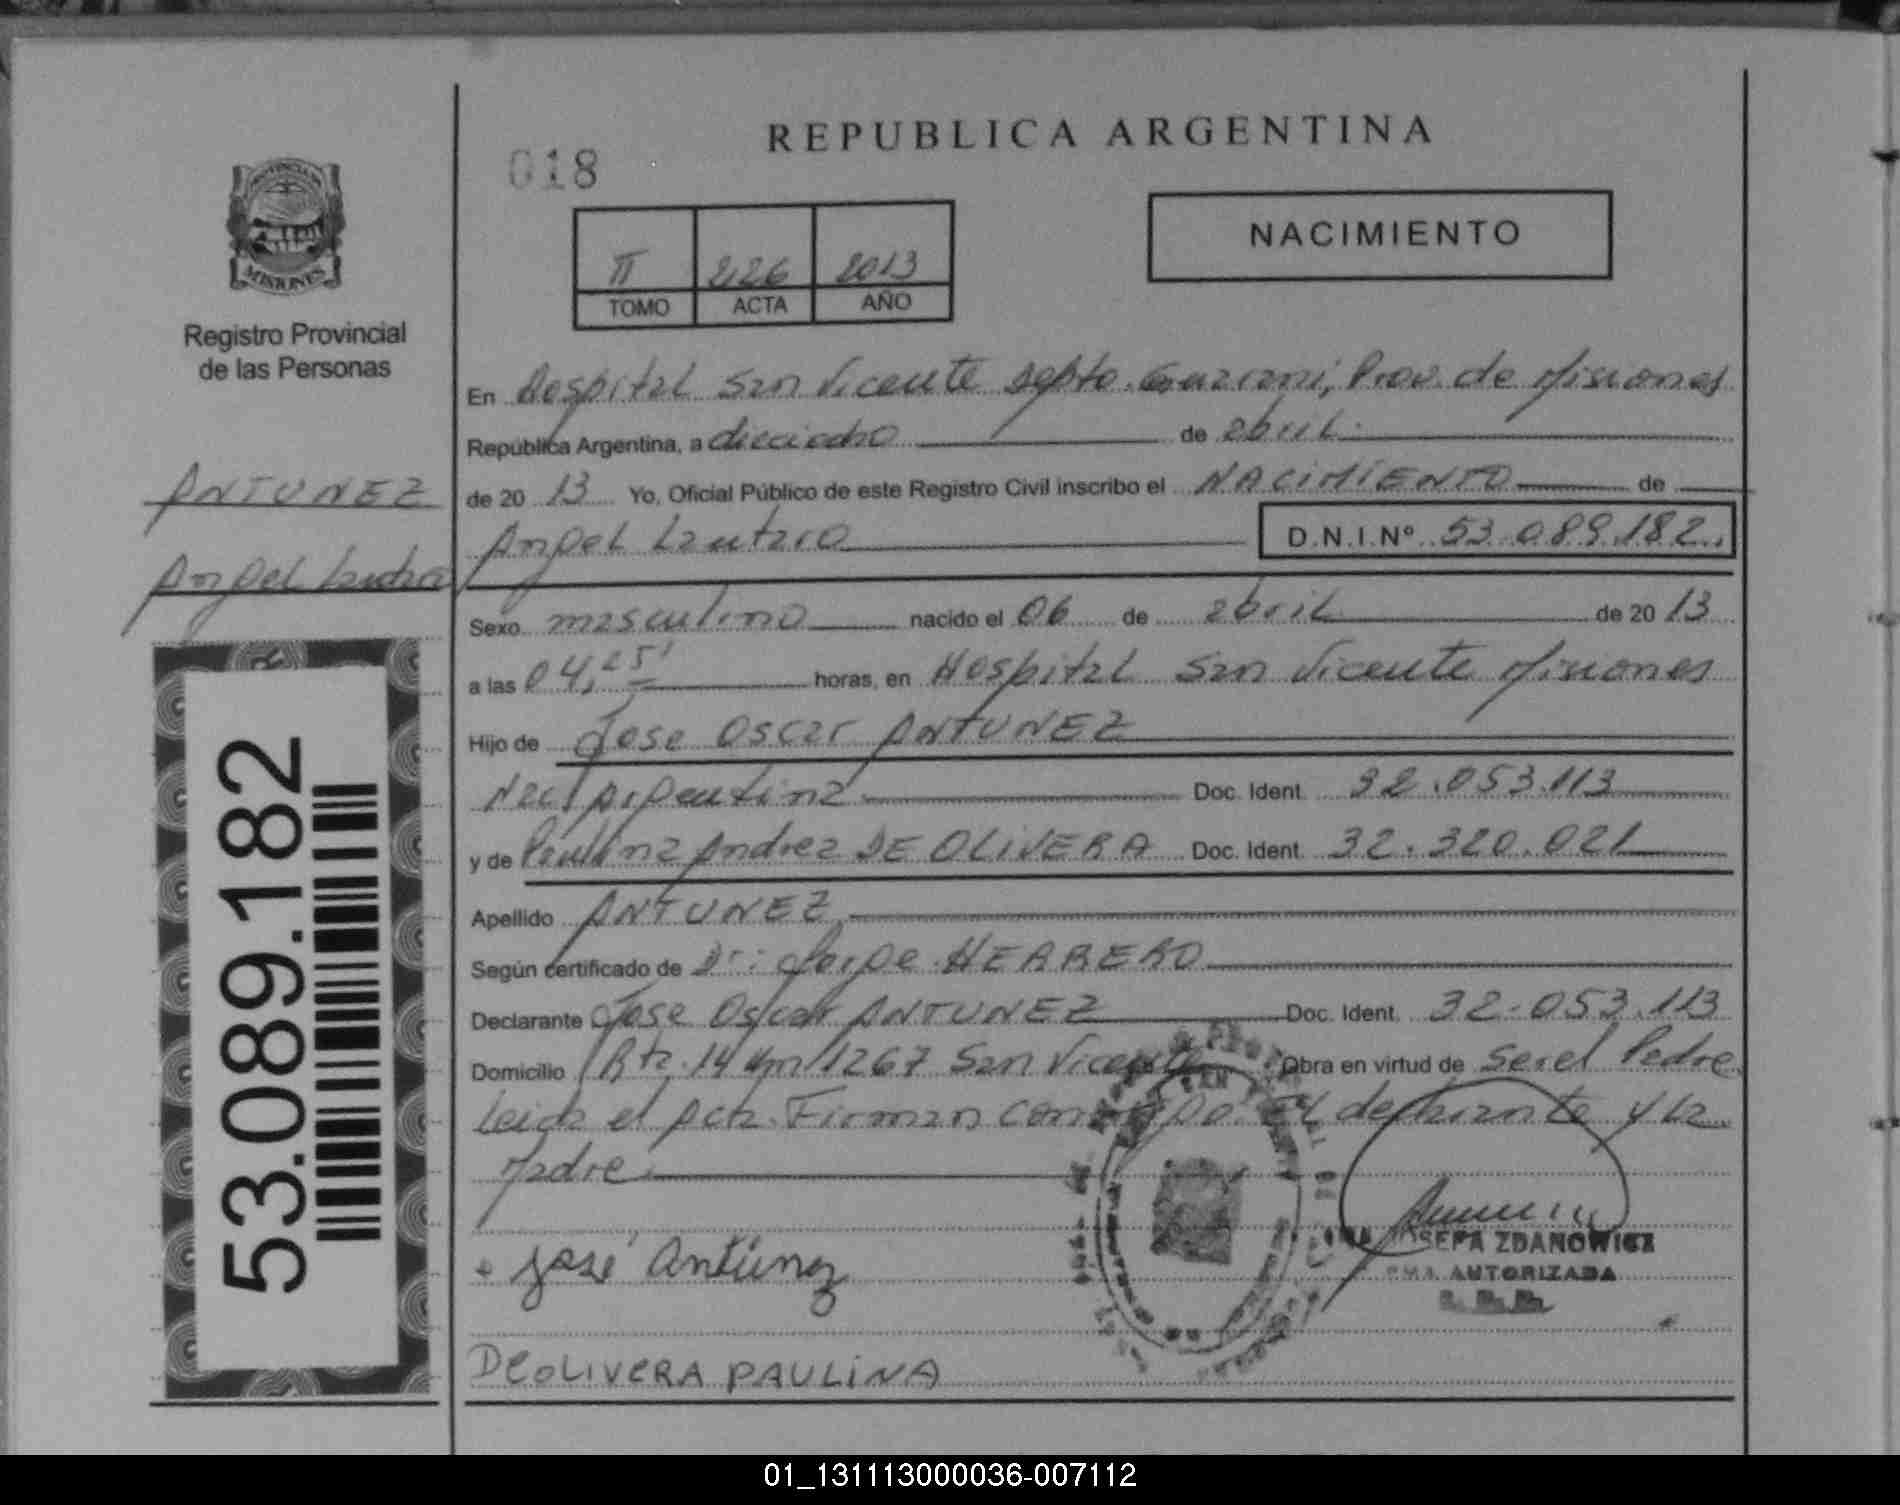 REPUBLICA ARGENTINA
018
NACIMIENTO
II 226 2013
TOMO ACTA AÑO
PROVINCIA DE
MISIONES
Registro Provincial
de las Personas
ANTUNEZ
Angel Lautaro
53.089.182
En Hospital San Vicente Depto. Guarani, Prov. de Misiones
República Argentina, a dieciocho de abril
de 20 13 Yo, Oficial Público de este Registro Civil inscribo el NACIMIENTO de
Angel Lautaro D.N.I.Nº 53.089.182.
Sexo masculino nacido el 06 de abril de 20 13
a las 04,25' horas, en Hospital San Vicente Misiones
Hijo de Jose Oscar ANTUNEZ
Nac. Argentina Doc. Ident. 32.053.113
y de Paulina Andrea DE OLIVERA Doc. Ident. 32.320.021
Apellido ANTUNEZ
Según certificado de Dr: Jorge HERRERO
Declarante Jose Oscar ANTUNEZ Doc. Ident. 32-053.113
Domicilio Rta. 14 Km 1267 San Vicente Obra en virtud de ser el Padre
Leida el Acta. Firman conmigo. El declarante y la
Madre
José Antúnez
JOSEFA ZDANOWICZ
AUTORIZADA
DeOLIVERA PAULINA
01_131113000036-007112